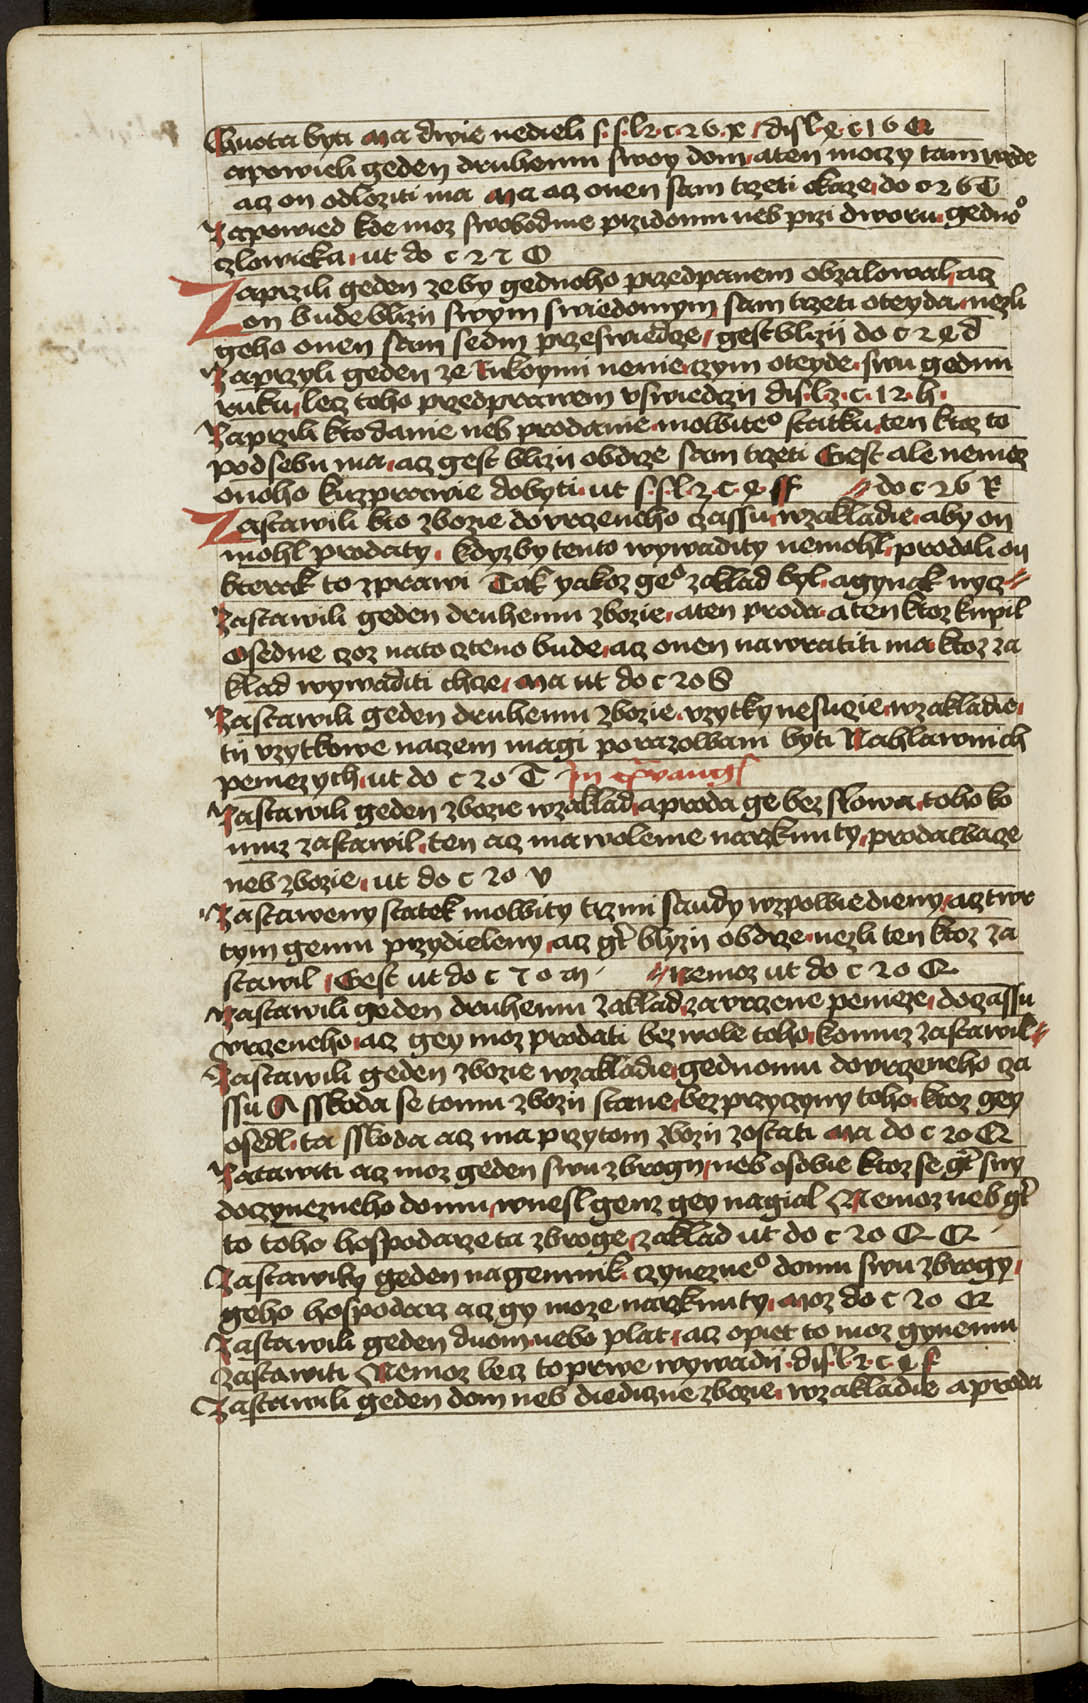 Lhuota byti Ma dwie nedieli s·s·l·2·c·26·x / dis·l·e·c·16 Q
apowieli geden druhemu swoy dom, aten moczy tam wede
acz on odloziti ma Ma acz onen sam trzeti okaze, do c 26 T
Zapowied kde moz swobodnie przidomu neb przi dworu gednoº
czlowieka, ut do c 27 O
Zaprzili geden zeby gednoho przedpanem obzalowal, acz
on bude blizij swym swiedomym sam trzeti oteyda, nezli
geho onen sam sedm przeswiedcze, gest blizij do c 2 e d
Zaprzyli geden ze Rukoymi nenie, czym oteyde, swu gednu
ruku, lecz toho przedprawem vswiedczij dis·l·z·c·12·h·
Zaprzili kto danie neb prodanie mowiteº statku, ten ktoz to
pod sebu ma, acz gest blizij obdrze sam trzeti Gest ale nemoz
onoho kuzprawie dobyti ut s·s·l·2·c·e ff // do c 26 R
Zastawili kto zbozie dovrczeneho czassu, wzakladie, aby on
mohl prodaty, kdyzby tento wywadity nemohl, prodali on
bterak to zprawi Tak yakoz geº zaklad byl, agynak nycz //
Zastawili geden druhemu zbozie, aten proda, aten ktoz kupil
Osedne czoz nato czteno bude, acz onen nawratiti ma, ktoz za
klad wywaditi chcze, Ma ut do c 20 S
Zastawili geden druhemu zbozie, vzytky nesucie, wzakladie,
tij vzytkowe naczem magi porazowani byti Nahlawnich
peniezych, ut do c 20 T In Ewangl
Zastawili geden zbozie wzaklad, aproda ge bez slowa, toho ko
muz zastawil, ten acz ma wolenie narzknuty, prodawacze
neb zbozie, ut do c 20 v
Zastaweny statek mowity trzmi saudy wzpowiedieny, acz twr
tym gemu przydieleny, acz gt blyzij obdrze, nezli ten ktoz za
stawil, Gest ut do c 70 m // nemoz ut do c 20 Q
Zastawili geden druhemu zaklad, za vrczene penieze, doczassu
vrczeneho, acz gey moz prodati bez wole toho, komuz zastawil //
Zastawili geden zbozie wzakladie, gednomu dovrczeneho cza
ssu A sskoda se tomu zbozij stane, bez przyczyny toho, ktoz gey
osedl, ta sskoda acz ma przytom zbozij zostati Ma do c 20 Q
Zatawiti acz moz geden swu zbrogy, neb osobie ktoz se gt swy
doczynezneho domu, wnesl genz gey nagial Nemoz neb gt
to toho hospodarze ta zbroge, zaklad ut do c 20 Q Q
Zastawiky geden nagemnik czynezneº domu swu zbrogy,
geho hospodarz acz gy moze narzknuty, Moz do c 20 Q
Zastawili geden duom nebo plat, acz opiet to moz gynemu
zastawiti Nemoz lecz toprwe wywadij dis·l·2·c·e f
Zastawili geden dom neb diediczne zbozie, wzakladie aproda